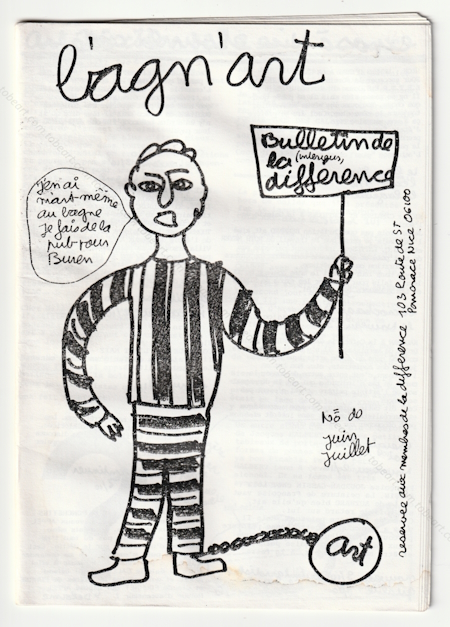 l'agn'art
Bulletin de
la (intérieur)
difference
J'en ai
m'art-même
au bagne
Je fais de la
pub pour
Buren
No
Juin
Juillet
art
reservee aux membres de la difference 103 Route de ST
Pancrace Nice 06100